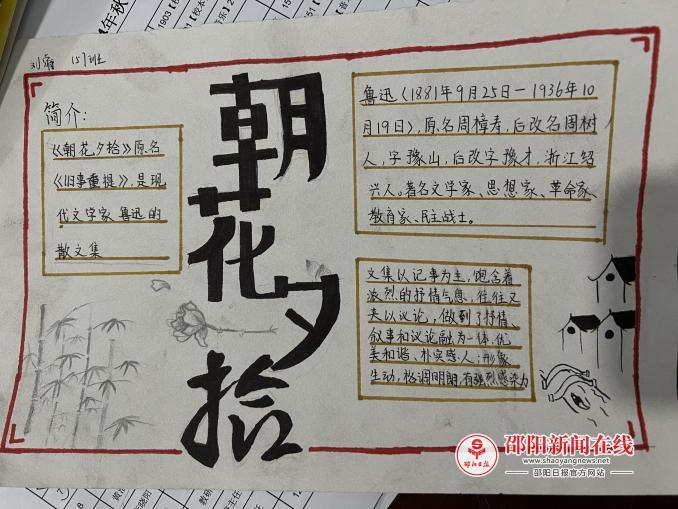 157班
简介:
《朝花夕拾》原名
《旧事重提》,是现
代文学家鲁迅的
散文集
朝花夕拾
鲁迅(1881年9月25日—1936年10
月19日),原名周樟寿,后改名周树
人,字豫山,后改字豫才,浙江绍
兴人。著名文学家、思想家、革命家、
教育家、民主战士。
文集以记事为主,饱含着
浓烈的抒情气息,往往又
夹以议论,做到了抒情、
叙事和议论融为一体,优
美和谐、朴实感人;形象
生动,格调明朗,有强烈感染力
邵阳新闻在线
www.shaoyangnews.net
邵阳日报官方网站
邵阳日报